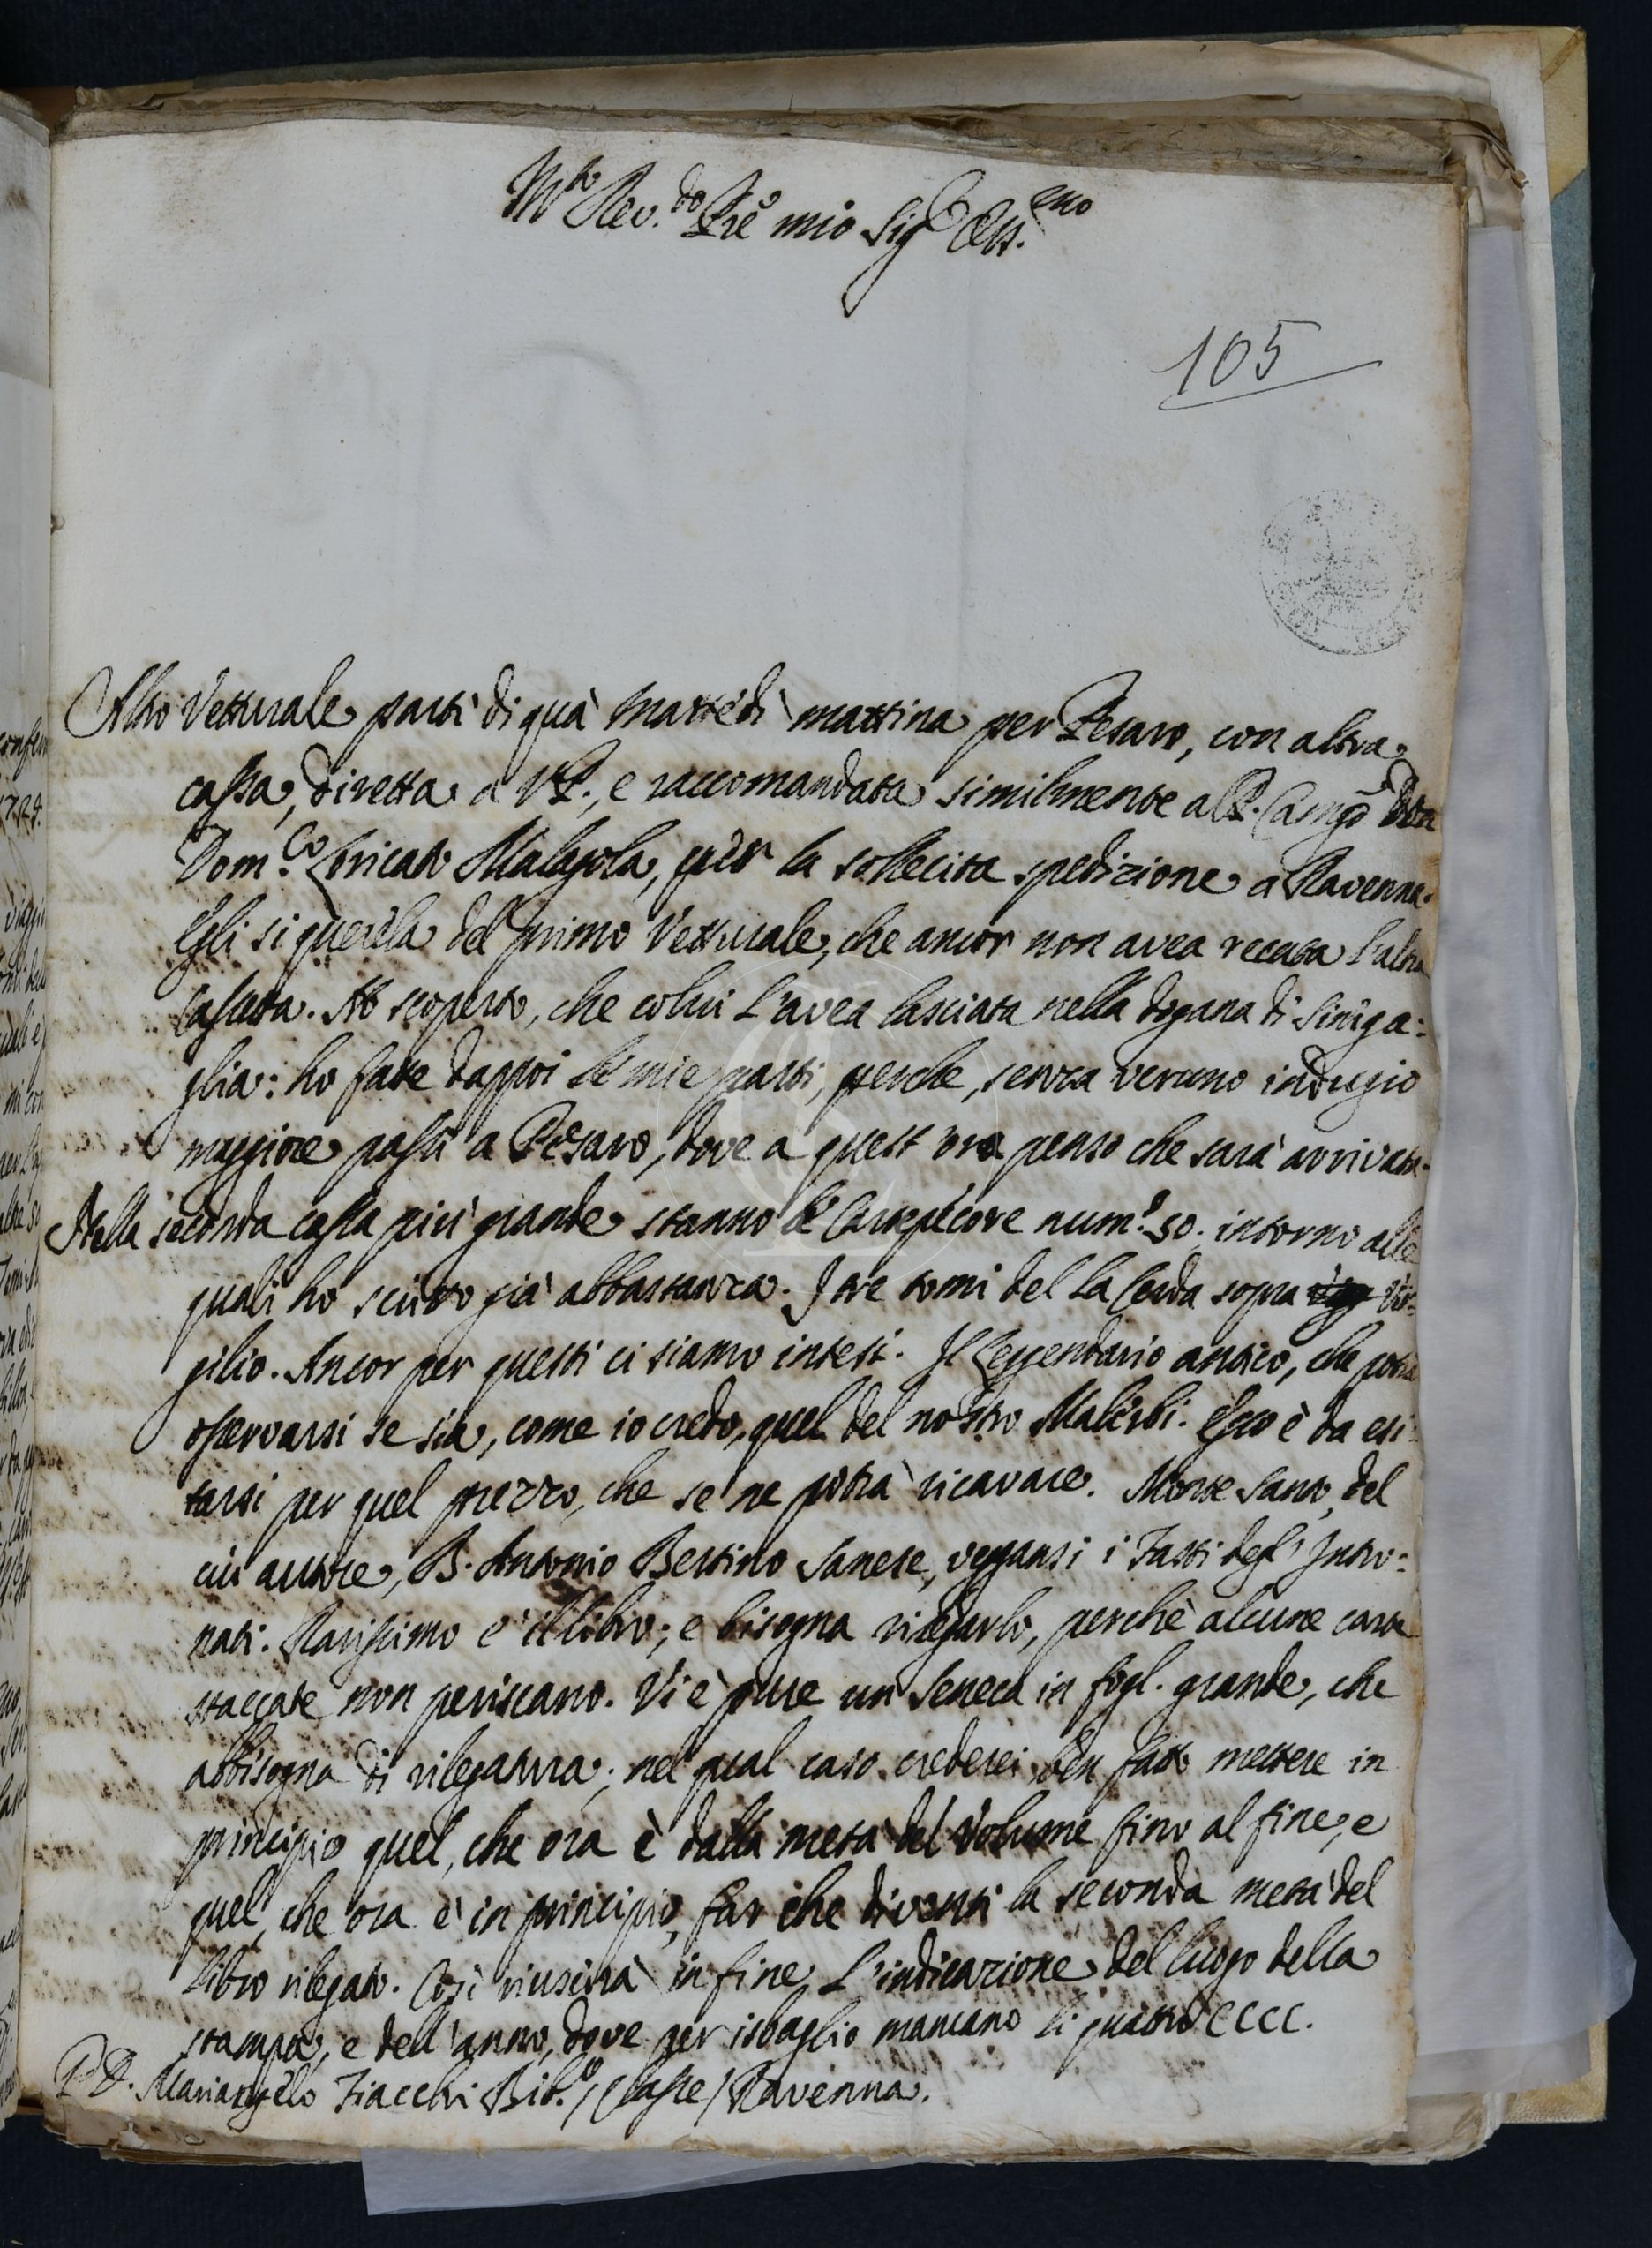 Mto Rev.do Pre mio Sigr Oss.mo
105
Altro Vetturale partì di quà Martedì mattina per Pesaro, con altra
cassa, diretta a VP., e raccomandata similmente al P. Camgo Don
Dom.co Loricato Malagola, per la sollecita spedizione a Ravenna.
Egli si querela del primo Vetturale, che ancor non avea recata l'altra
Cassetta. Ho scoperto, che colui l'avea lasciata nella dogana di Siniga:
glia: ho fatte dappoi le mie parti, perche, senza veruno indugio
maggiore passi a Pesaro, dove a quest'ora penso che sarà arrivata.
Nella seconda cassa più grande stanno le Cartepecore num.o 50. intorno alle
quali ho scritto già abbastanza. I tre tomi del La Cerda sopra Vir=
gilio. Ancor per questi ci siamo intesi. Il Leggendario antico, che potrà
osservarsi se sia, come io credo, quel del nostro Malerbi. Esso è da esi:
tarsi per quel prezzo, che se ne potrà ricavare. Monte Santo, del
cui autore, B. Antonio Bettino Sanese, veggansi i Fasti degl'Intro:
nati. Rarissimo è il libro; e bisogna rilegarlo, perchè alcune carte
staccate non periscano. Vi è pure un Seneca in fogl. grande, che
abbisogna di rilegatura; nel qual caso crederei ben fatto mettere in
principio quel, che ora è dalla metà del Volume fino al fine, e
quel, che ora è in principio, far che diventi la seconda metà del
libro rilegato. Così riuscirà in fine l'indicazione del luogo della
stampa, e dell'anno, dove per isbaglio mancano li quattro CCCC.
P. D. Mariangelo Fiacchi Bib.o / Classe / Ravenna.